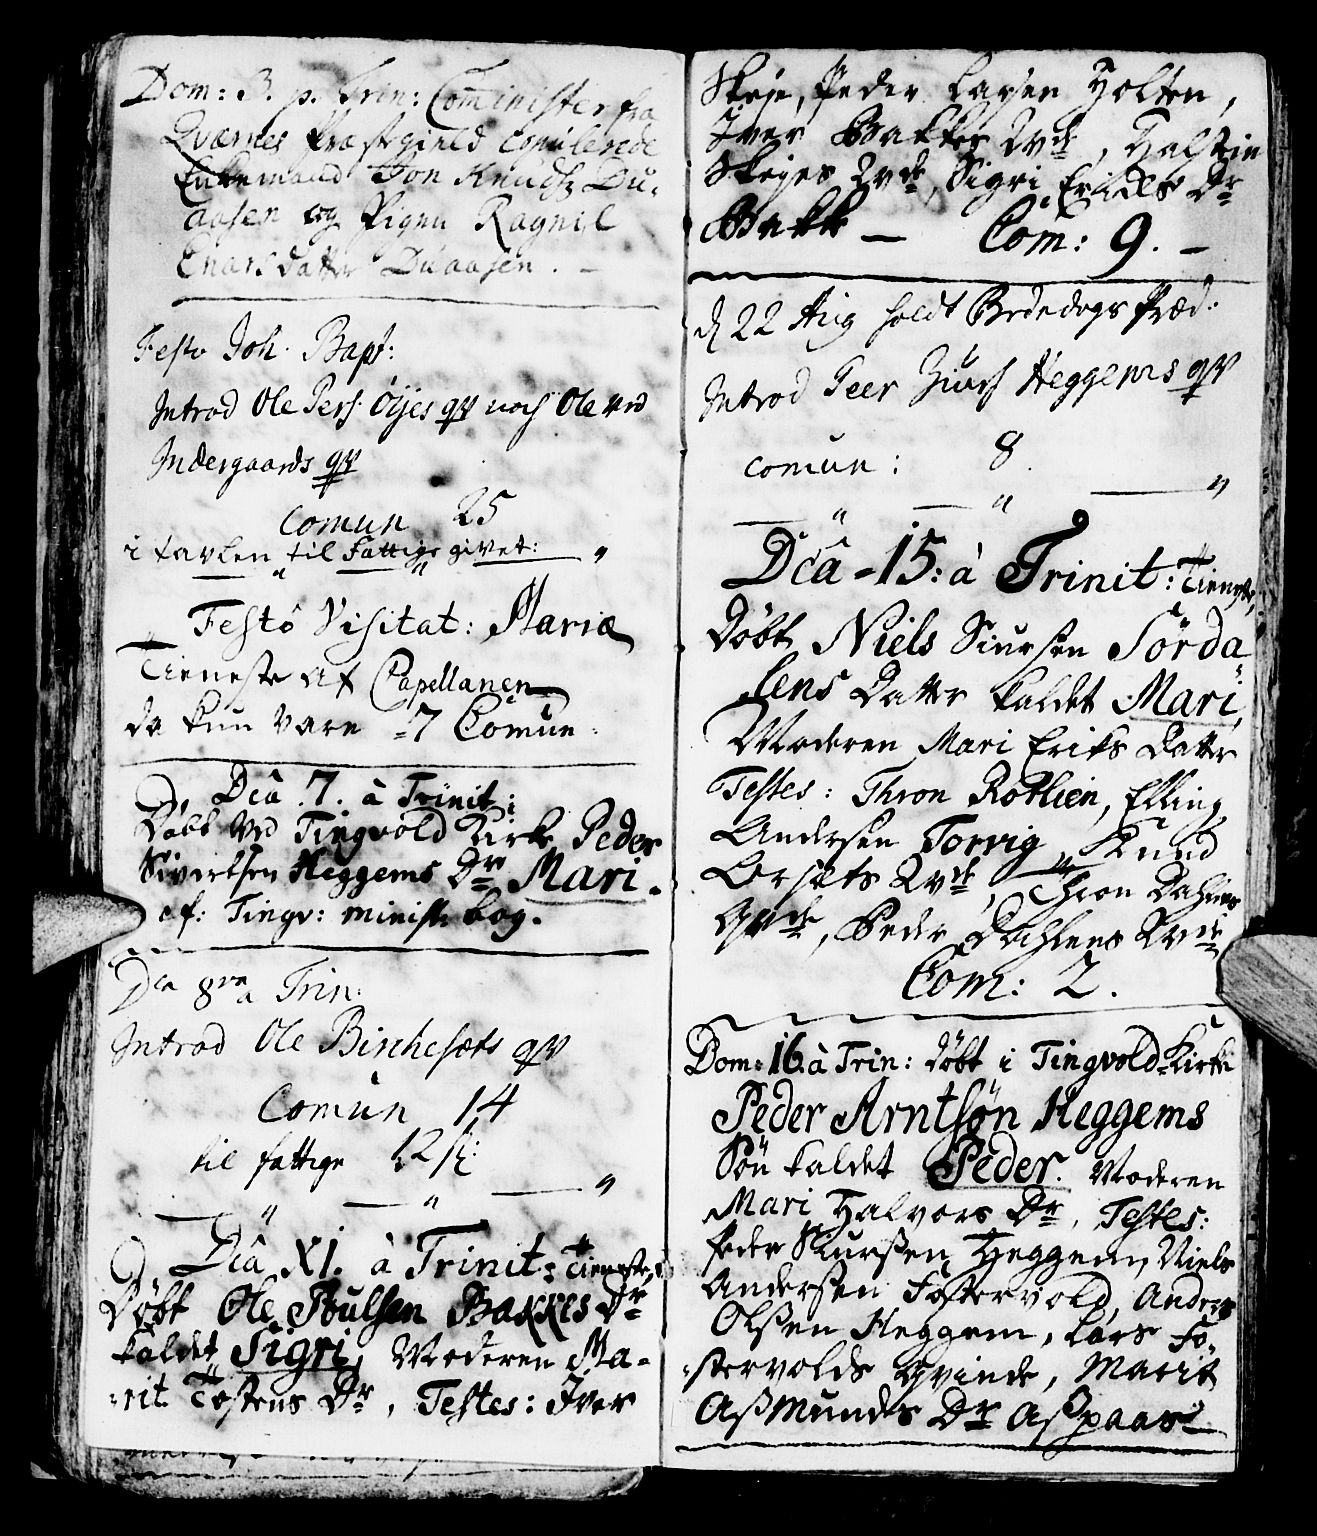 Dom: 3. p. Trin: Cōminister fra
Qværnes Præstegield copulerede
Enkemand Jon Knuds. Du-
aasen og Pigen Ragnil
Enars datter Duaasen. —
Festo Joh. Bapt:
Introd Ole Pers. Öÿes qv noch Ole ved
Indergaards qv
Comun 25
i tavlen til Fattige givet:
Festo Visitat: Mariæ
Tieneste af Capellanen
da kun vare 7 Comun.
Dca .7. à Trinit:
Døbt ved Tingvold Kirke Peder
Sivertsen Heggems Dr Mari.
cf: Tingv: minist. bog.
Dca 8va a Trin:
Introd Ole Birchesæts qv
Comun 14
til fattige 12 s:
Dca XI. à Trinit: Tieneste,
Døbt Ole Poulsen Bakkes Dr
kaldet Sigri, Moderen Ma-
rit Tostens Dr, Testes: Iver
Skeje, Peder Larsen Holten,
Iver Bakkes Qvde, Halstein
Skejes Qvde, Sigri Erichs Dr
Bakk — Com: 9. —
d 22 Aug holdt Bededags Præd:
Introd Peer Heggems qv
comun: 8.
Dca 15: à Trinit: Tieneste,
Døbt Niels Siursen Sørda
lens Datter kaldet Mari,
Moderen Mari Eriks Datter
Testes: Thron Rotlien, Elling
Andersen Torvig, Knud
Lorsæts Qvde, Thron Dahlens
Qvde, Peder Dahlens Qvde
Com: 2.
Dom: 16. à Trin: Døbt i Tingvold Kirke
Peder Arntsøn Heggems
Søn kaldet Peder. Moderen
Mari Halvors Dr, Testes:
Peder Siurssen Heggem, Niels
Andersen Fostervold, Anders
Olssen Heggem, Lars Fo-
stervolds Qvinde, Marit
Assmunds Dr Asspaas